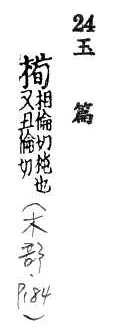 24 玉篇
橁
相倫切杶也
又丑倫切
(木部·P.184)